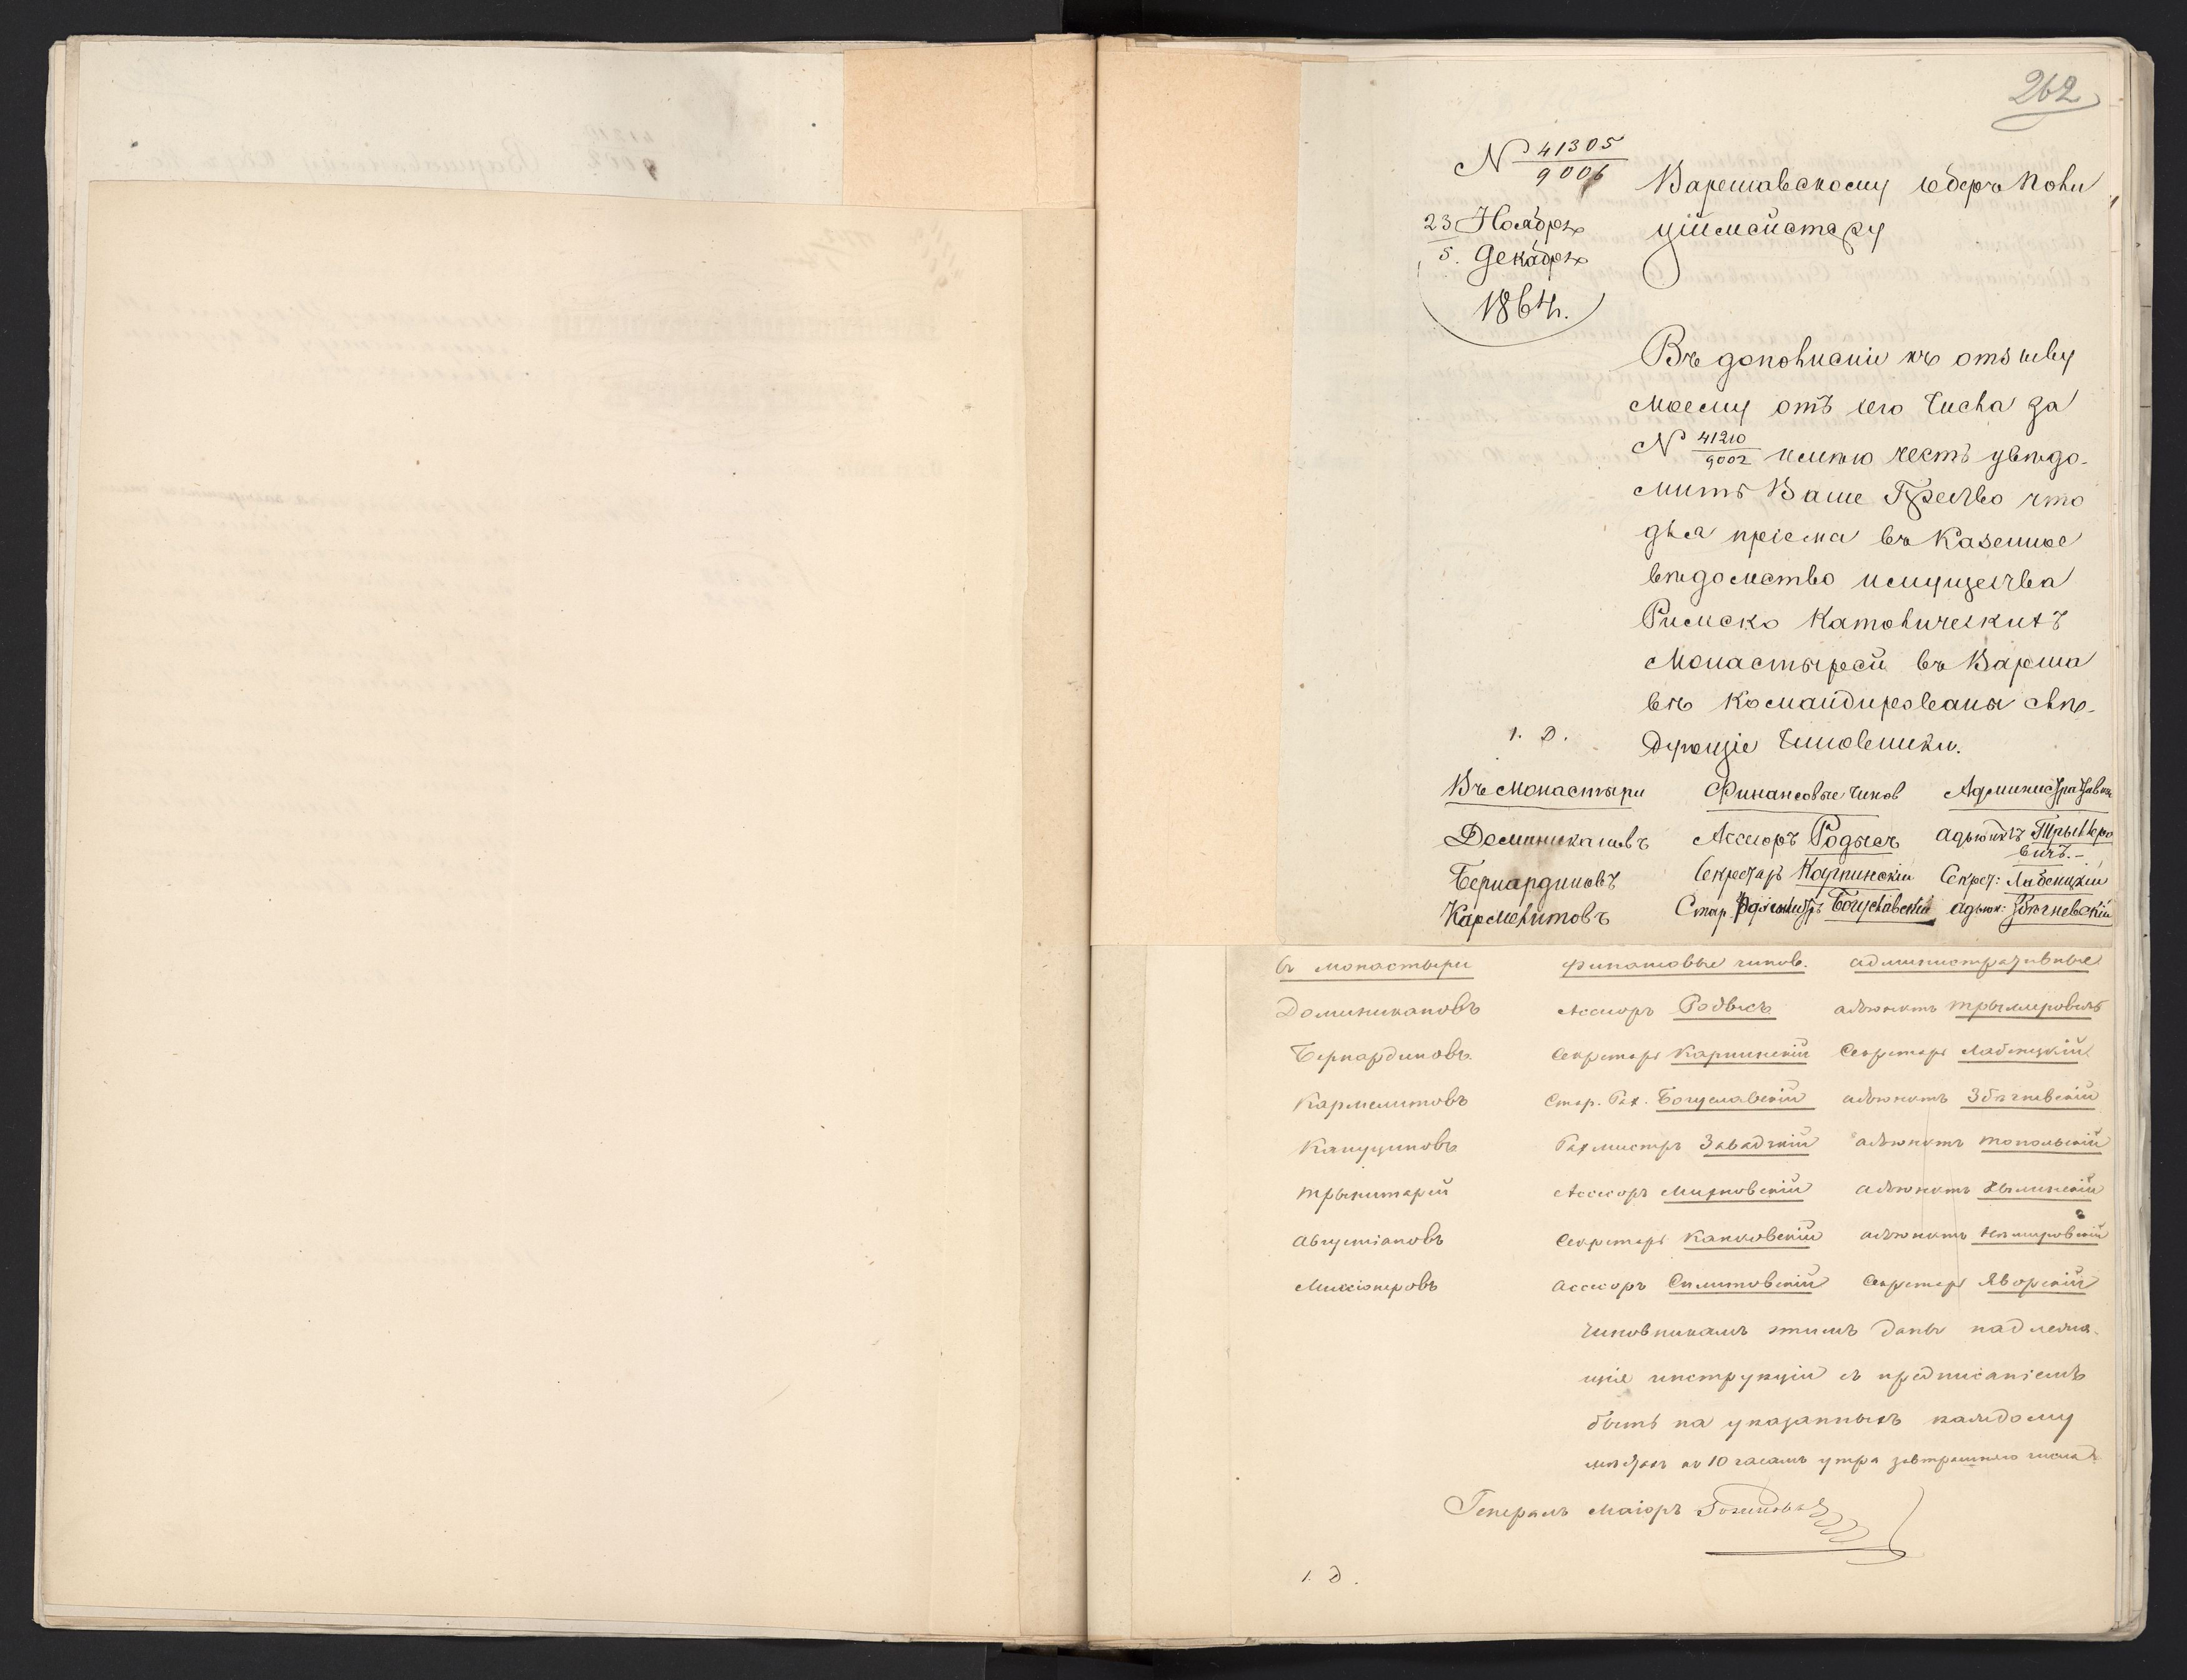 262
№ 41305/9006
Варшавскому Оберъ Поли
23 Ноября
ціймейстеру
5. Декабря
1864.
Въ дополненіи къ отзыву
моему отъ сего числа за
№ 41210/9002 имѣю честь увѣдо-
мить Ваше Прев-во что
для пріема въ Казенное
вѣдомство имущества
Римско Католическихъ
Монастырей въ Варша
вѣ командированы слѣ-
1. Д. дующіе Чиновники.
Въ Монастыри Финансовые чинов Административн
Доминикановъ Ассесоръ Родысъ адъюнктъ Трыме ро
вичъ.-
Бернардиновъ Секретарь Карпинскій Секрет: Лабенцкій
Кармелитовъ Стар. Богуславскій адъюн: Збѣгневскій
въ монастыри финансовые чинов. административные
Доминикановъ Ассесоръ Родысъ адъюнктъ Трымеровичъ
Бернардиновъ Секретарь Карпинскій Секретарь Лабенцкій
Кармелитовъ Стар. Рах. Богуславскій адъюнктъ Збѣгневскій
Капуциновъ Рахмистръ Завадзкій адъюнктъ Топольскій
Трынитарей Ассесоръ Мирковскій адъюнктъ
Августіановъ Секретарь Канковскій адъюнктъ
Миссіонеровъ Ассесоръ Секретарь Яворскій
Чиновникамъ этимъ даны надлежа-
щіе инструкціи съ предписаніемъ
быть на указанныхъ каждому
мѣстахъ къ 10 часамъ утра завтрашняго числа.
Генералъ Маіоръ
1. Д.